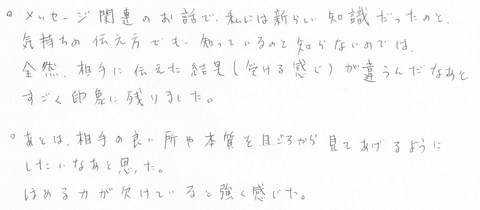 ○ メッセージ関連のお話で、私には新らしい知識だったのと、
気持ちの伝え方でも、知っているのと知らないのでは、
全然、相手に伝えた結果(受ける感じ)が違うんだなあと
すごく印象に残りました。
○ あとは、相手の良い所や本質を日ごろから見てあげるように
したいなあと思った。
ほめる力が欠けていると強く感じた。